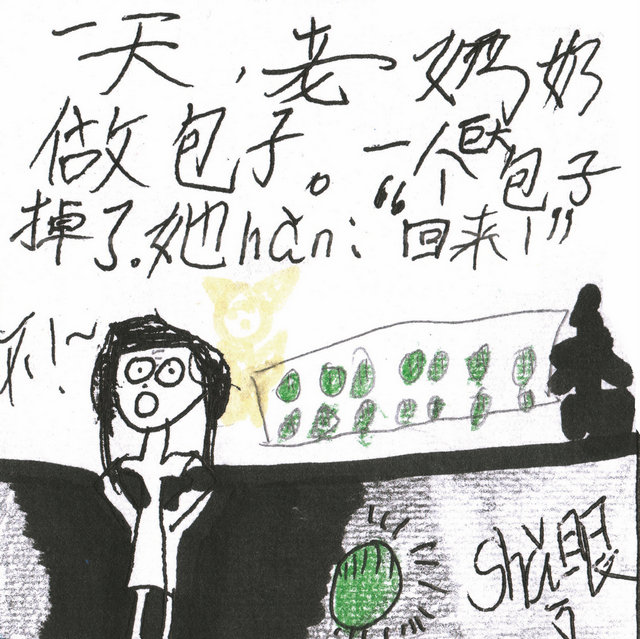 一天，老奶奶
做包子。一个巨大包子
掉了。她hàn：“回来！”
不！~
Shǎ眼
了